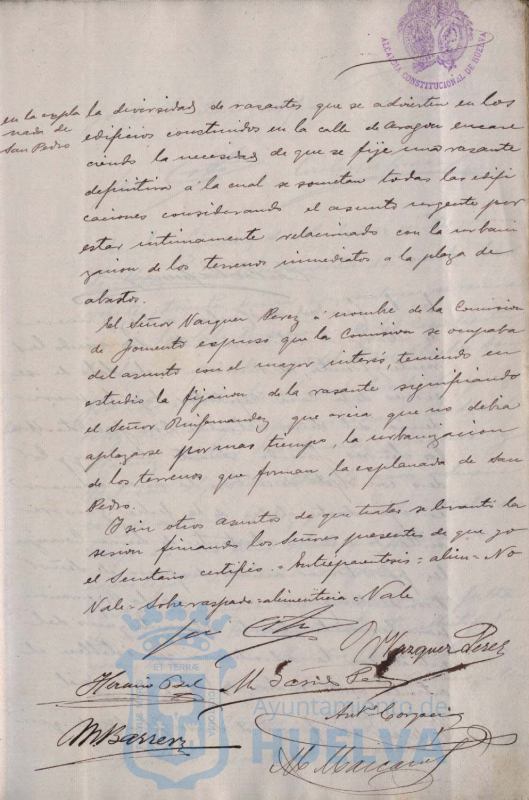 ALCALDIA CONSTITUCIONAL DE HUELVA
en la expla
nada de
San Pedro
la diversidad de rasantes que se advierten en los
edificios construidos en la calle de Aragon encare
ciendo la necesidad de que se fije una rasante
definitiva á la cual se sometan todas las edifi
caciones considerando el asunto urgente por
estar intimamente relacionado con la urbani
zacion de los terrenos inmediatos a la plaza de
abastos.
El Señor Vazquez Perez á nombre de la Comision
de Fomento espresó que la Comision se ocupaba
del asunto con el mayor interés, teniendo en
estudio la fijacion de la rasante significando
el Señor que creia que no debia
aplazarse por mas tiempo, la urbanizacion
de los terrenos que forman la esplanada de San
Pedro.
Y sin otros asuntos de que tratar se levantó la
sesion firmando los Señores presentes de que yo
el Secretario certifico = Entreparentesis = alim = No
Vale = Sobre raspado = alimenticia = Vale
Vazquez Perez
Horacio
M
M Barrera
Antº
ET TERRÆ
Ayuntamiento de
HUELVA